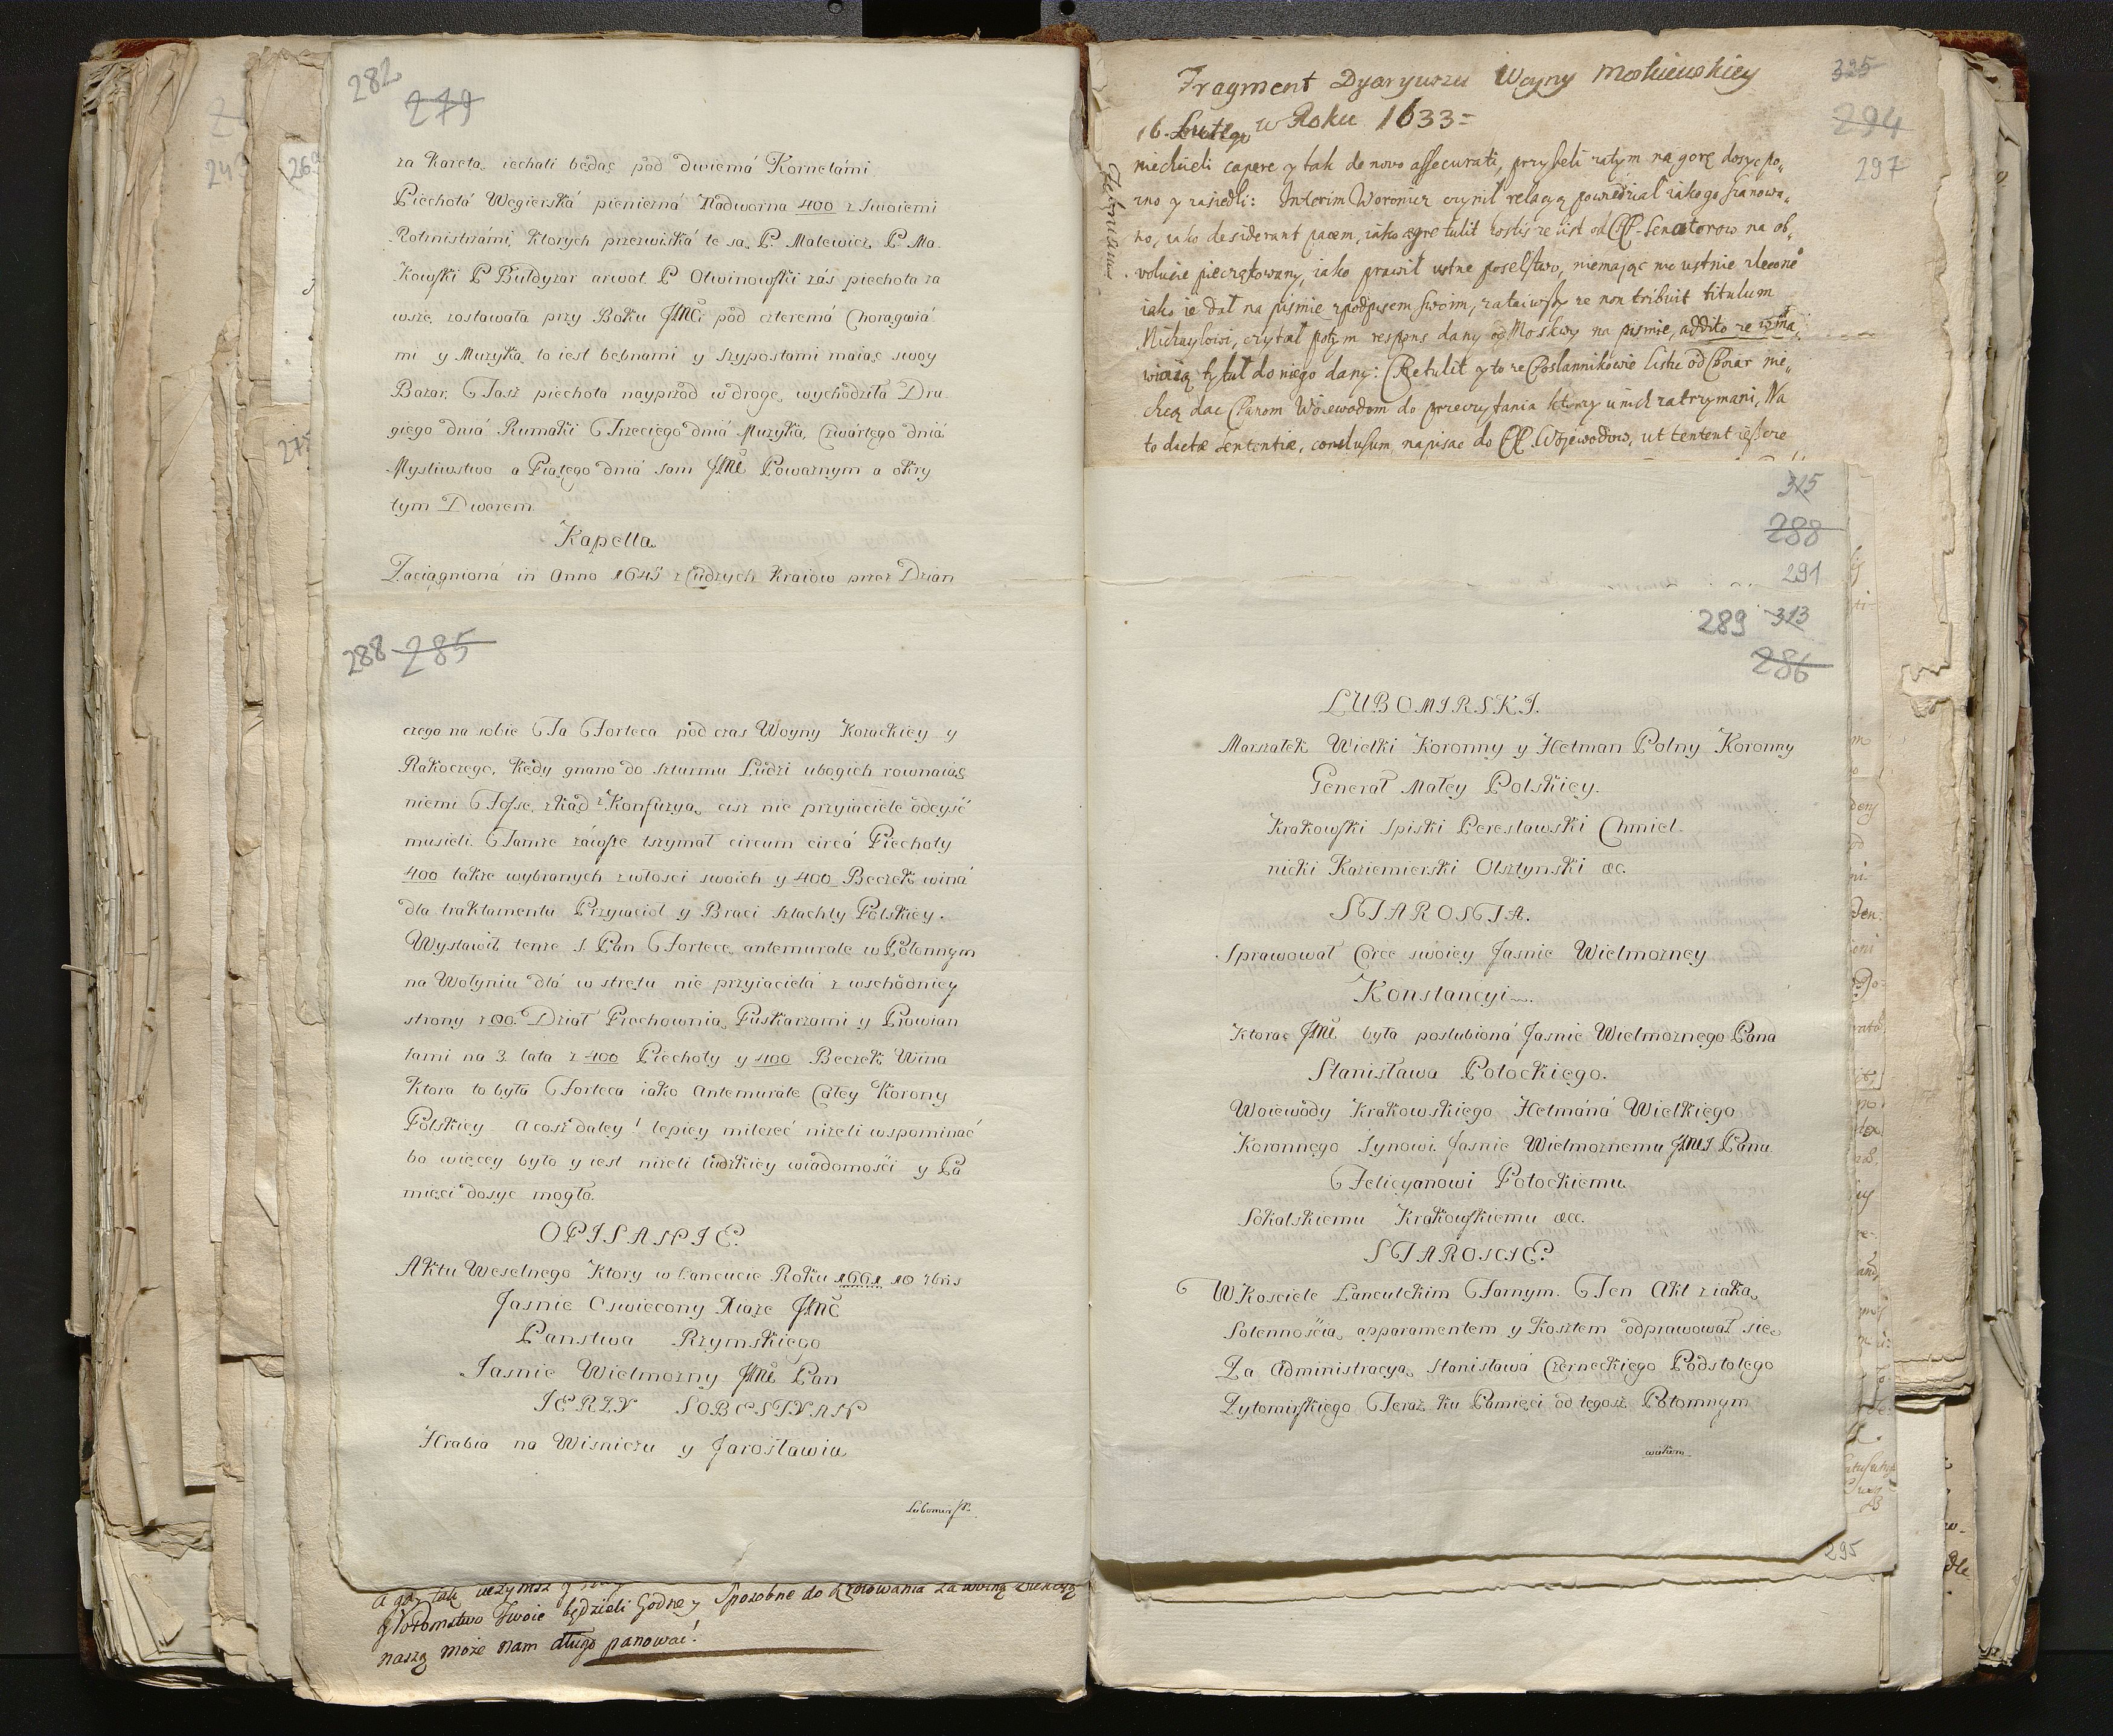 282
279
za Karetą iechali będąc pod dwiemá Kornetámi
Piechotá Węgierská pieniezná Nadworna 400 z swoiemi
Rotmistrzámi, ktorych przezwiská te są, P. Malewicz, P. Ma.
Kowski P Buldyzar arwat. P Otwinowski zás piechota za
wsze zostawała przy Boku JMCi pod czteremá Chorągwiá
mi y Muzyką to iest bębnami y szyposzami maiąc swoy
Bazar, Taż piechota nayprzod w drogę wychodziła Dru
giego dniá Rumaki Trzeciego dniá Muzyka, Czwartego dniá
Mysliwstwo a Piątego dniá sam JMC Powaznym a okry
tym Dworem.
Kapella
Zaciągnioná in Anno 1645 z Cudzych Kraiow przez Dzian
288 285
czego na sobie Ta Forteca pod czas Woyny Kozackiey y
Rakoczego, kędy gnano do szturmu Ludzi ubogich rownaiąc
niemi Fosse, zkąd z Konfuzyą aż nie przyiaciele odeyść
musieli. Tamże záwsze trzymał circum circá Piechoty
400 także wybranych z włosci swoich y 400 Beczek winá
dla traktamentu Przyiacioł y Braci Szlachty Polskiey.
Wystawił tenże S. Pan Fortecę antemurale w Połonnym
na Wołyniu dlá wstrętu nie przyiacielá z wschodniey
strony z 00. Dział Prochownią, Puszkarzami y Prowian
tami na 3 lata z 400 Piechoty y 400 Beczek Wina
Ktora to była Forteca iako Antemurale Całey Korony
Polskiey A cosz daley! lepiey milczeć nizeli wspominać
bo więcey było y iest nizeli ludzkiey wiadomości y Pa
mięci dosyc mogło.
OPISANIE.
Aktu Weselnego Ktory w Lancucie Roku 1661 10
Jasnie Oswiecony Xiąże JMC
Panstwa Rzymskiego
Jasnie Wielmozny JMC Pan
JERZY SOBESTYAN
Hrabia na Wisniczu y Jarosławiu
Lubomirs
a gdy tak
Potomstwo Twoie będzieli Godne y Sposobne do Krolowania za wolną Elekcyą
naszą może nam długo panować!
Fragment Dyaryuszu Woyny Moskiewskiey
16. Lutego w Roku 1633=
325
294
297
niechcieli capere y tak de novo assecurati, przysieli zatym na gorę dosyć po„
zno y zasiedli: Interim Woronicz czynił relacyą powiedział iako go szanowa„
no, iako desiderant pacem, iako ægre tulit że list od PP. Senatorow na ob„
volucie pieczętowany, iako prawił ustne poselstwo, niemaiąc nic ustnie zlecone
iako ie dał na pismie z podpisem swoim, zataiwszy że non tribuit titulum
Michayłowi, czytał potym respons dany od Moskwy na pismie, addito że wyma„
wiaią tytuł do niego dany: Retulit y to że Posłannikowie Listu od Boiar nie„
chcą dac Panom Woiewodom do przeczytania ktorzy u nich zatrzymani, Na
to dictæ sententiæ, conclusum napisac do PP. Wojewodow, ut tentent ieszcze
315
288
291
289 313
286
LUBOMIRSKI.
Marszałek Wielki Koronny y Hetman Polny Koronny
Generał Małey Polskiey.
Krakowski Spiski Peresławski Chmiel-
nicki Kazimierski Olsztynski &c.
STAROSTA.
Sprawował Corce swoiey Jasnie Wielmozney
Konstancyi
Ktorą JMC była poslubioná Jasnie Wielmoznego Pana
Stanisława Potockiego.
Woiewody Krakowskiego Hetmáná Wielkiego
Koronnego Synowi Jasnie Wielmoznemu JMCi Panu
Felicyanowi Potockiemu
Sokalskiemu Krakowskiemu &c.
STAROSCIE.
W Kosciele Lancutckim Farnym. Ten Akt z iaką
Solennościa, apparamentem y Kosztem odprawował się
Za Administracyą Stanisławá Czerneckiego Podstolego
Zytomirskiego Teraz ku Pamięci od tegosz Potomnym
295